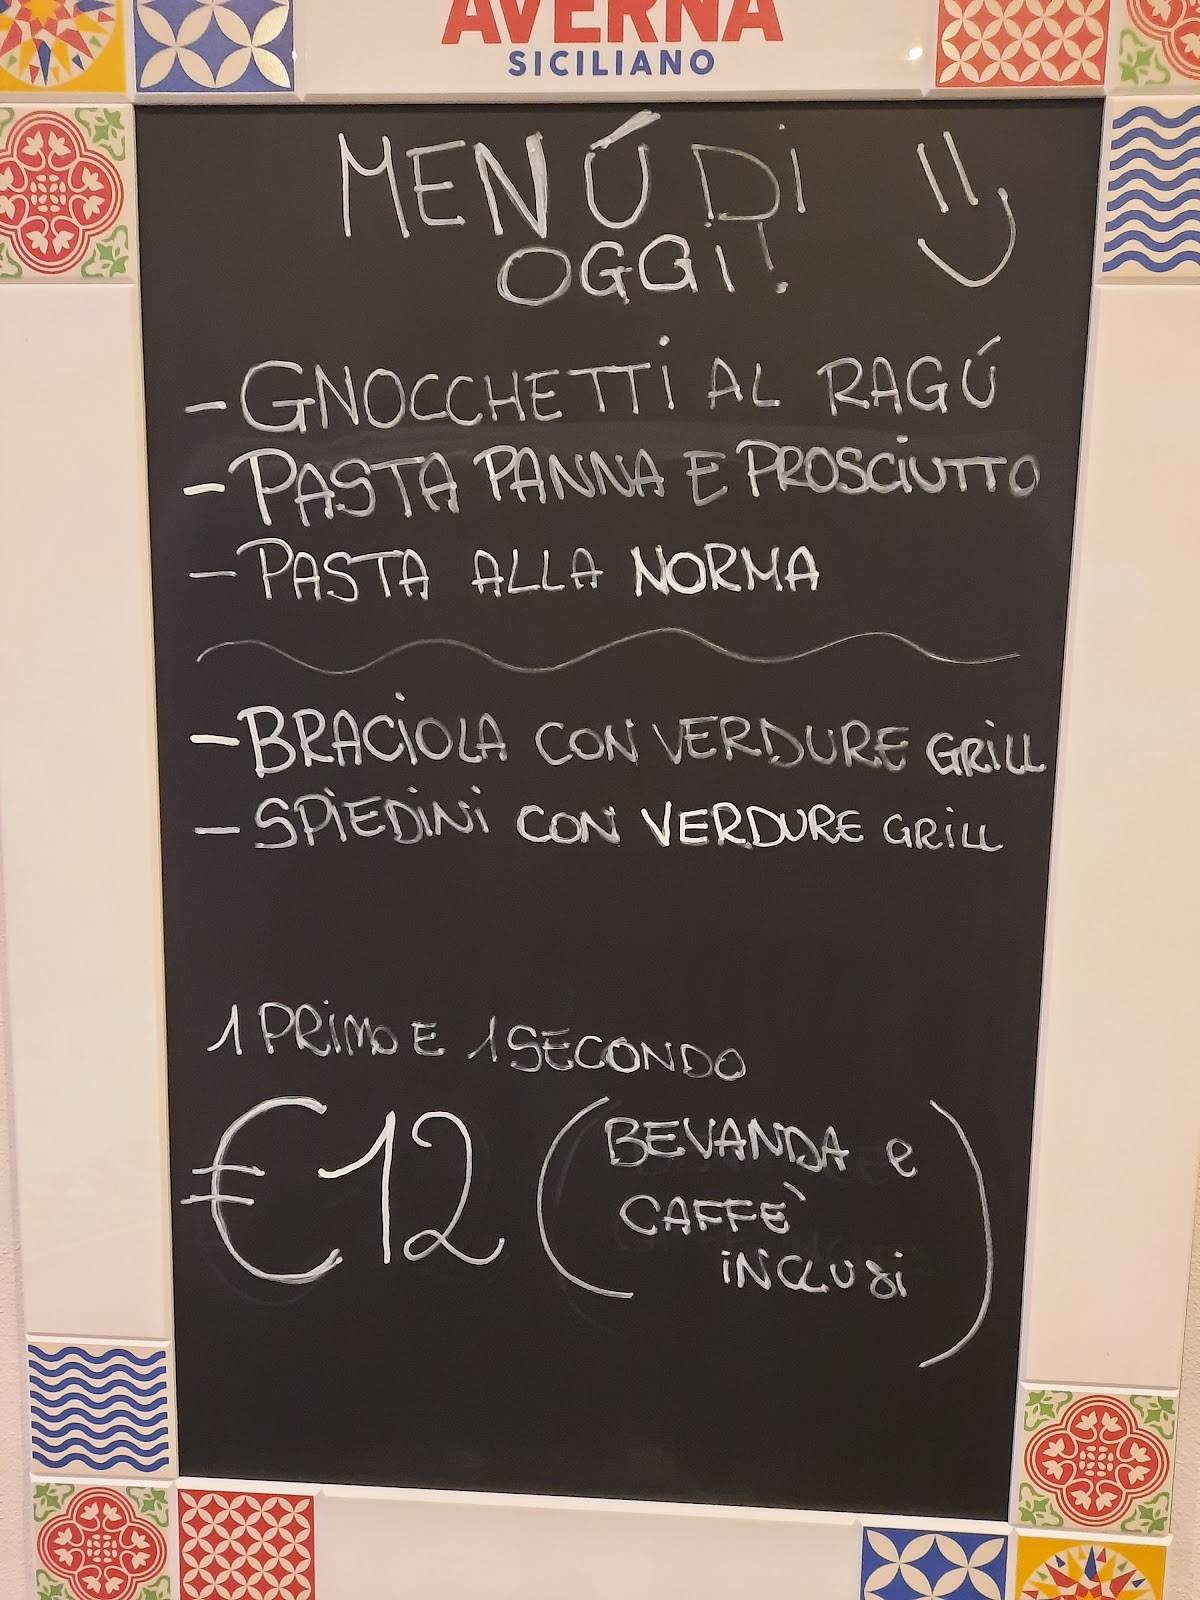 AVERNA
SICILIANO
MENÚ DI
OGGI!
- GNOCCHETTI AL RAGÚ
- PASTA PANNA E PROSCIUTTO
- PASTA ALLA NORMA
- BRACIOLA CON VERDURE GRILL
- SPIEDINI CON VERDURE GRILL
1 PRIMO E 1 SECONDO
€12 (BEVANDA e
CAFFÈ
INCLUSI)